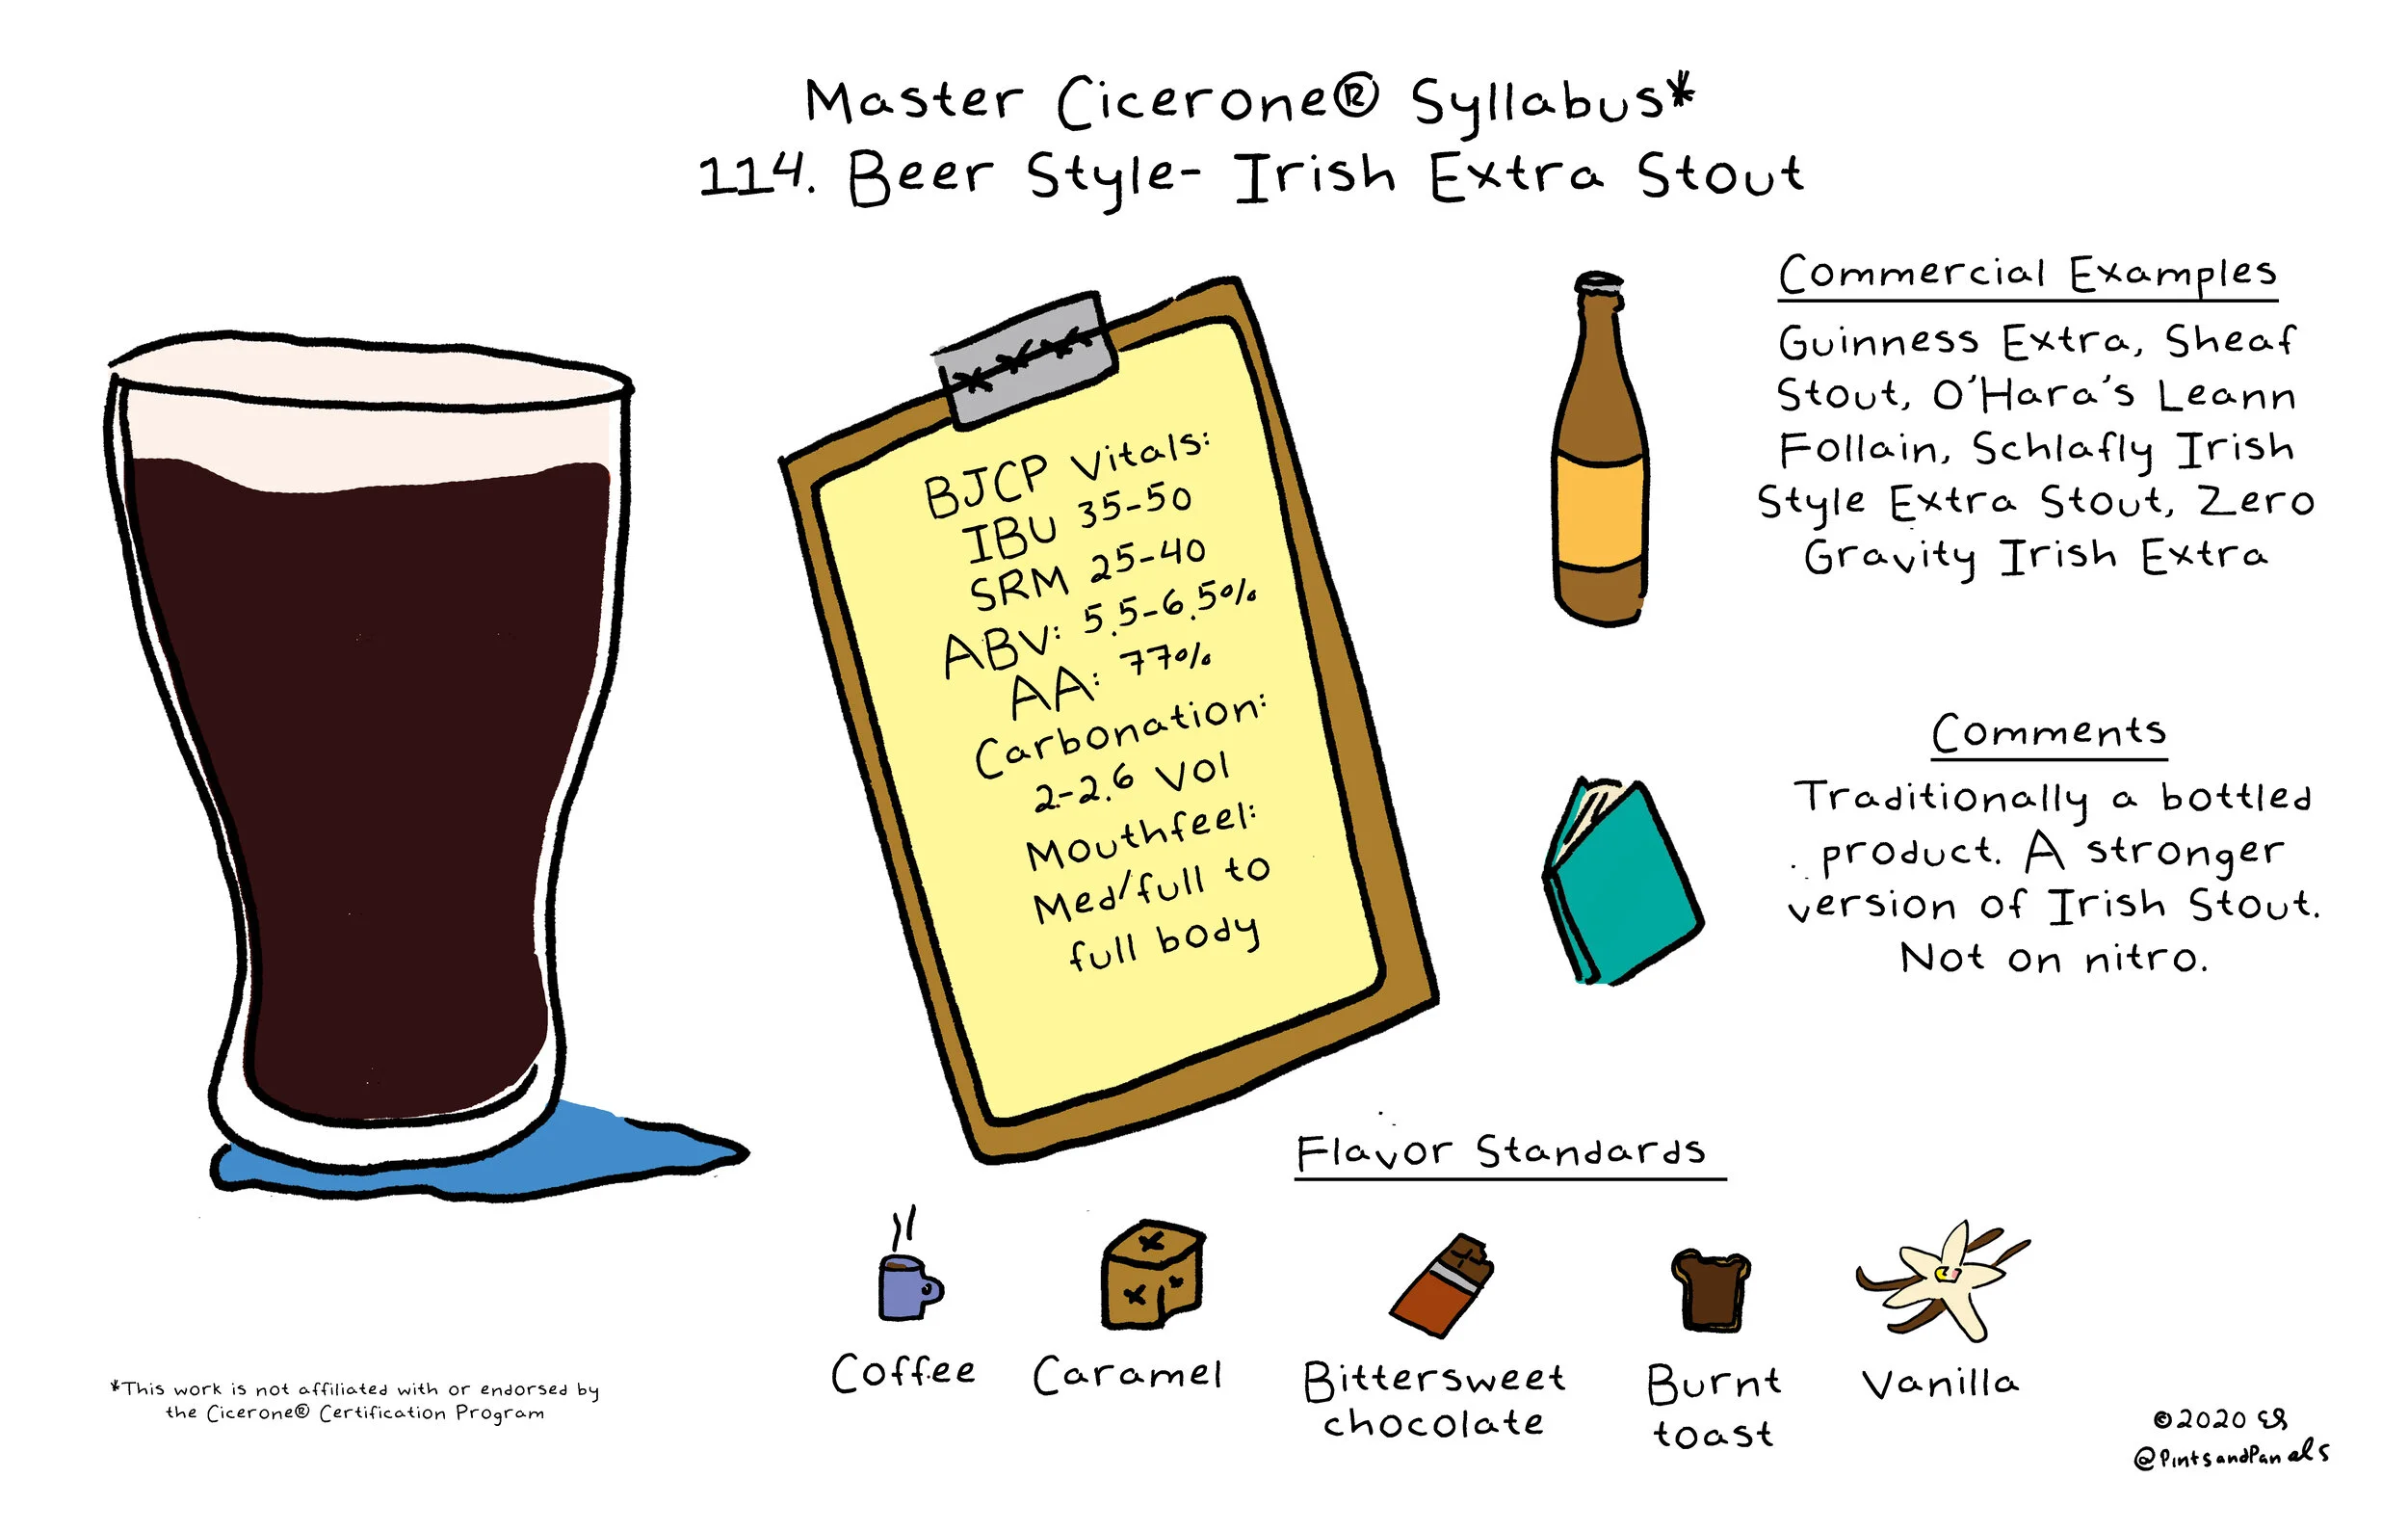 Master Cicerone® Syllabus*
114. Beer Style- Irish Extra Stout
BJCP Vitals:
IBU 35-50
SRM 25-40
ABV: 5.5-6.5%
AA: 77%
Carbonation:
2-2.6 Vol
Mouthfeel:
Med/full to
full body
Commercial Examples
Guinness Extra, Sheaf
Stout, O'Hara's Leann
Follain, Schlafly Irish
Style Extra Stout, Zero
Gravity Irish Extra
Comments
Traditionally a bottled
product. A stronger
version of Irish Stout.
Not on nitro.
Flavor Standards
Coffee
Caramel
Bittersweet
chocolate
Burnt
toast
Vanilla
*This work is not affiliated with or endorsed by
the Cicerone® Certification Program
©2020 ES
@PintsandPanels